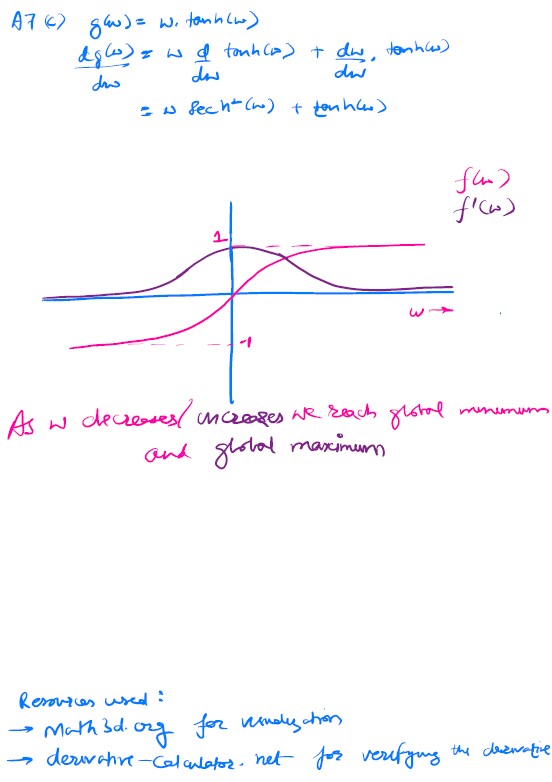 A7 (c) g(w) = w. tanh(w)
dg(w)/dw = w d/dw tanh(w) + dw/dw . tanh(w)
= w sech²(w) + tanh(w)
f(w)
f'(w)
1
w →
-1
As w decreases/ increases we reach global minimum
and global maximum
Resources used :
→ Math3d.org for
→ derivative-calculator.net for verifying the derivative